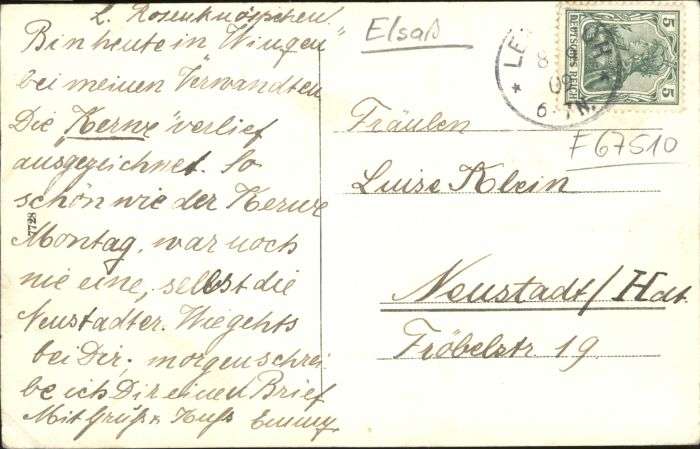 L. Rosenknöspchen
Bin heute in Wingen
bei meinen Verwandten
Die "Kerwe" verlief
ausgezeichnet. So
schön wie der Kerwe
Montag, war noch
nie eine, selbst die
Neustadter. Wie gehts
bei Dir, morgen schrei-
be ich Dir einen Brief
Mit Gruß & Kuss Emmy
7728
Elsaß
5 5
DEUTSCHES REICH
LE
SH.
8
09
6-7N.
F 67510
Fräulen
Luise Klein
Neustadt/Hdt
Fröbelstr. 19.